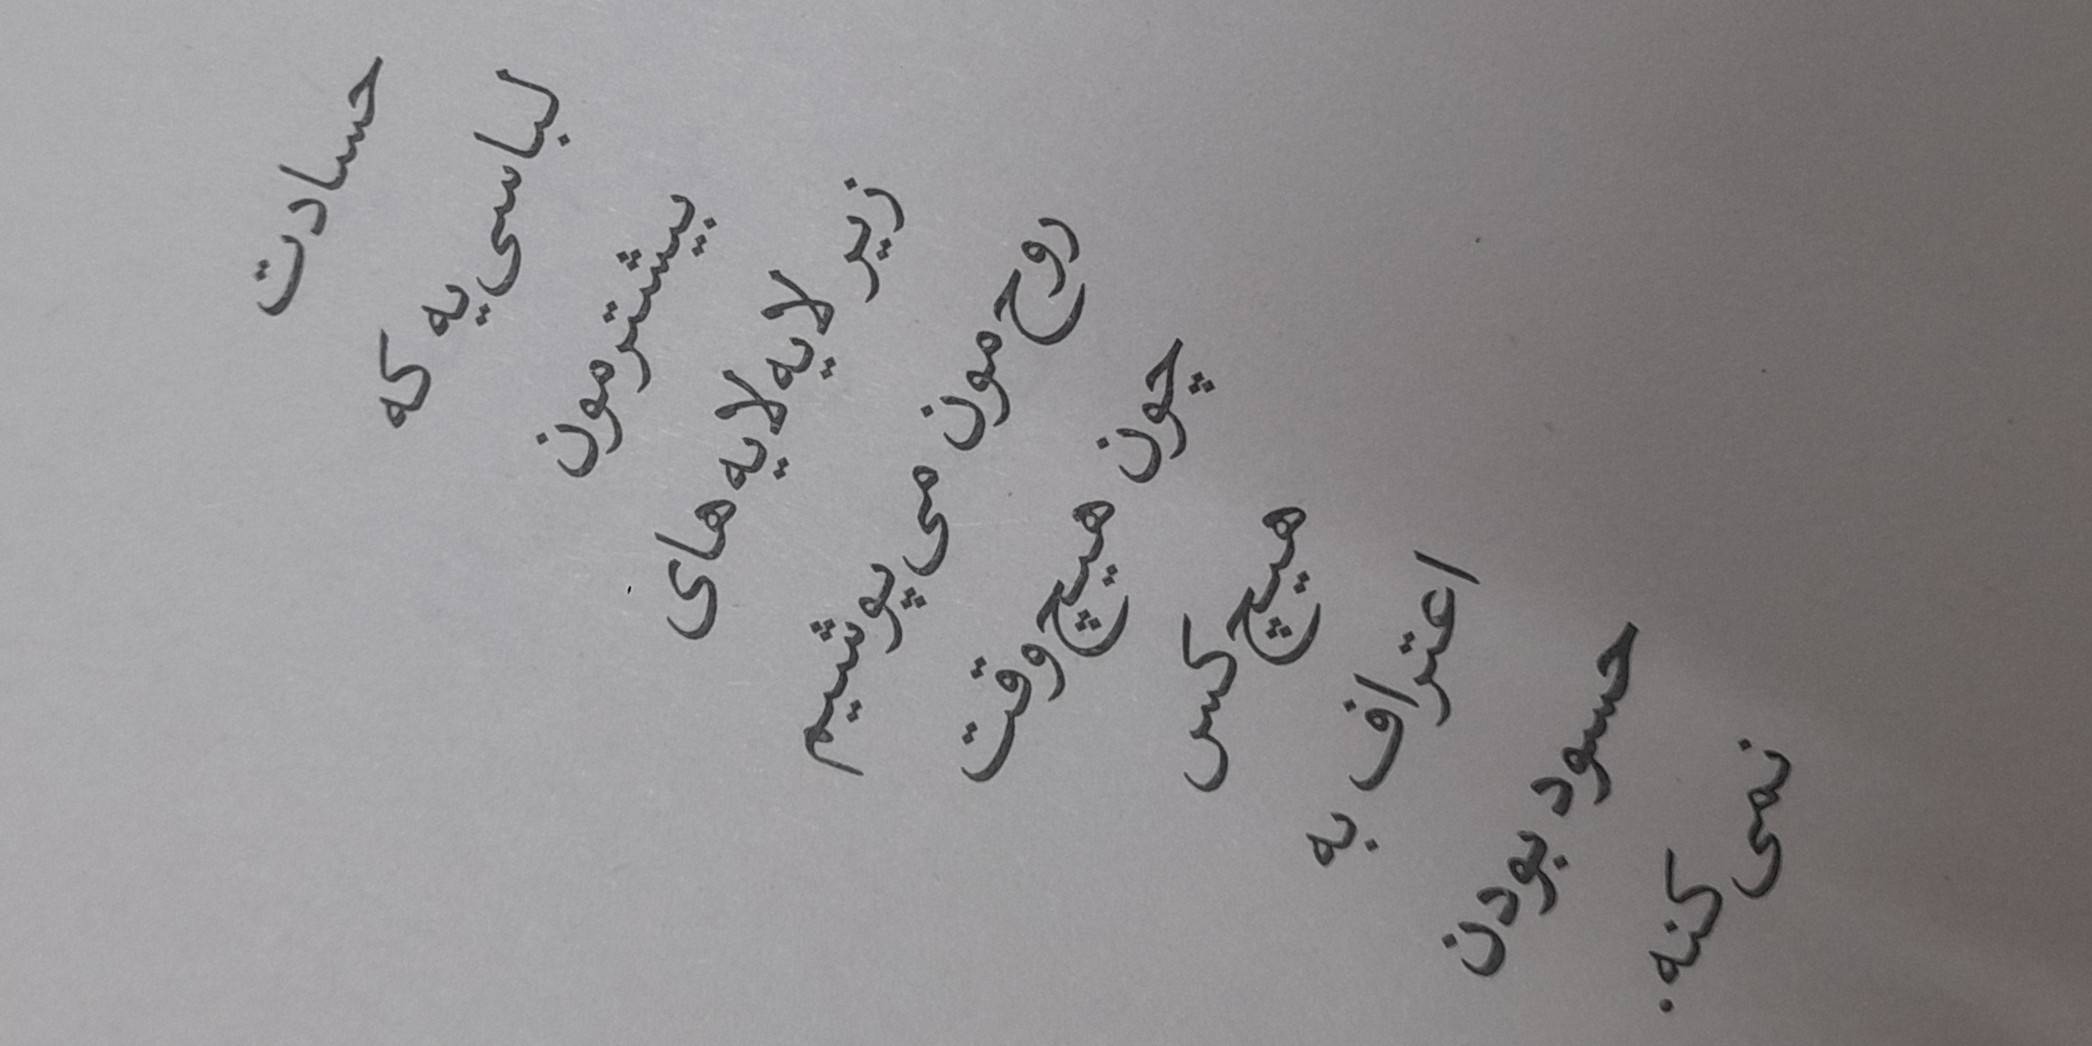 حسادت
لباسی‌یه که
بیشترمون
زیر لایه‌لایه‌های
روح‌مون می‌پوشیم
چون هیچ‌وقت
هیچ‌کس
اعتراف به
حسود بودن
نمی‌کنه.